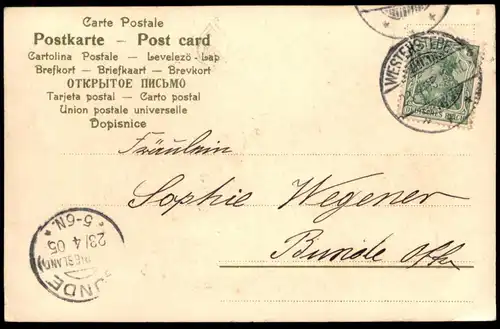 Carte Postale
Postkarte – Post card
Cartolina Postale – Levelező-Lap
Brefkort – Briefkaart – Brevkort
ОТКРЫТОЕ ПИСЬМО
Tarjeta postal – Carto postal
Union postale universelle
Dopisnice
WESTERSTEDE
Fräulein
Sophie Wegener
Bunde Ostfr.
*5-6N.*
23/4 05